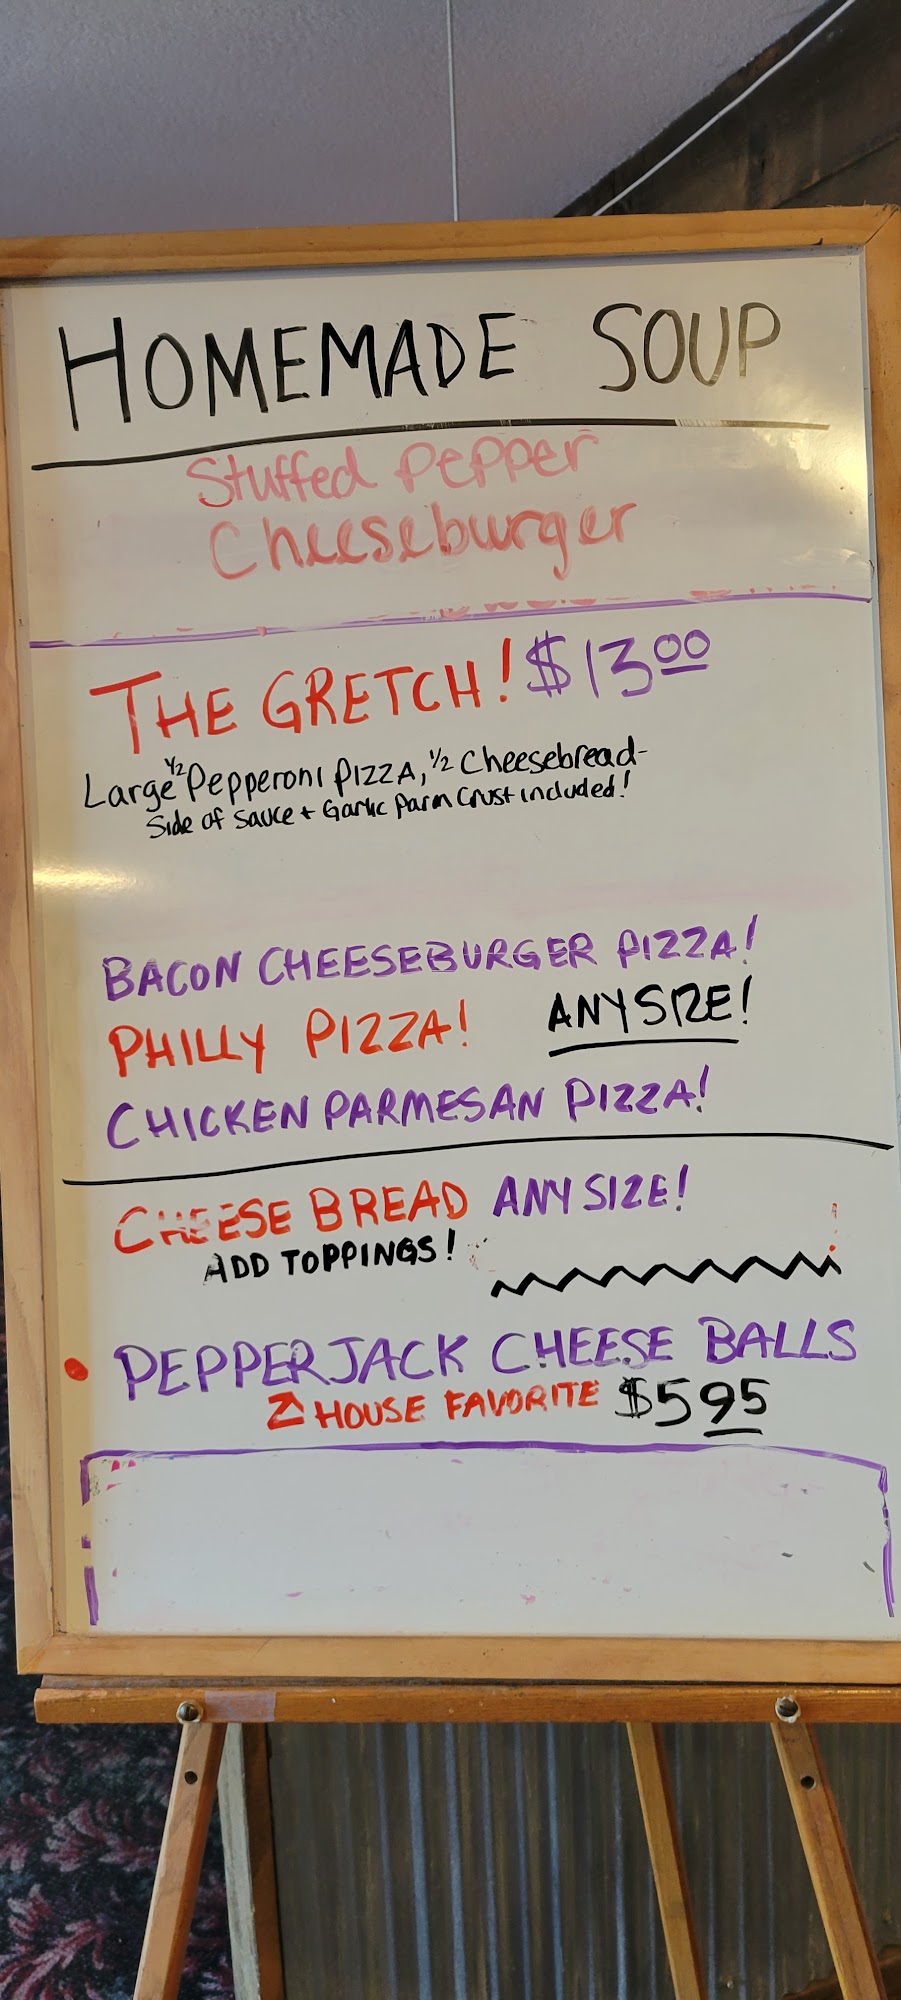 HOMEMADE SOUP
Stuffed Pepper
Cheeseburger
THE GRETCH! $13.00
Large 1/2 Pepperoni Pizza, 1/2 Cheesebread-
Side of Sauce + Garlic Parm Crust included!
BACON CHEESEBURGER PIZZA!
PHILLY PIZZA! ANY SIZE!
CHICKEN PARMESAN PIZZA!
CHEESE BREAD ANY SIZE!
ADD TOPPINGS!
PEPPERJACK CHEESE BALLS
HOUSE FAVORITE $5.95